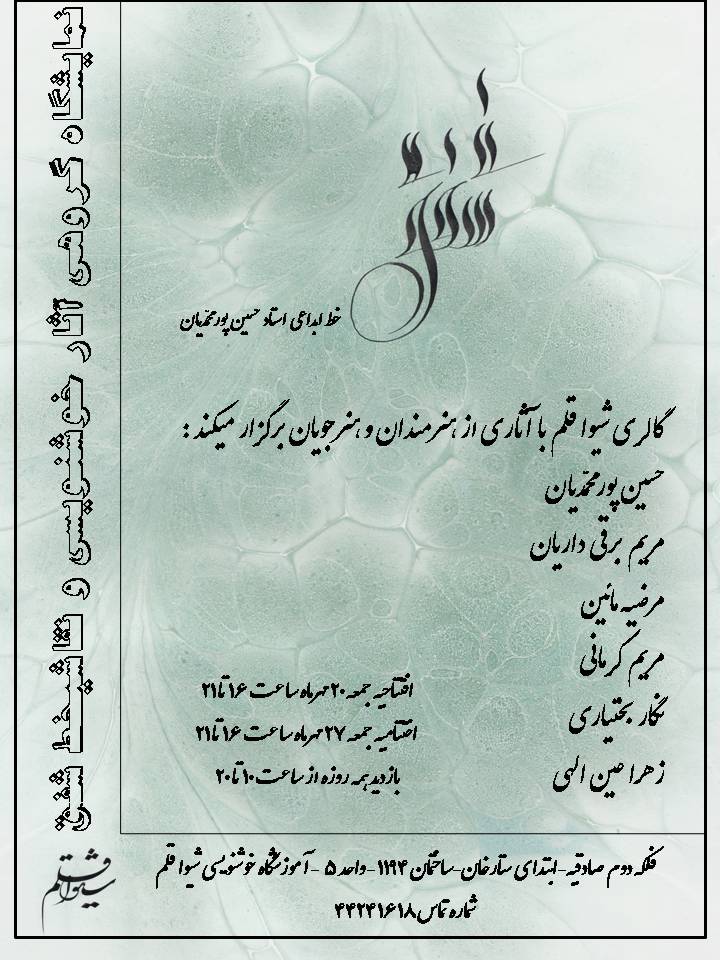 نمایشگاه گروهی آثار خوشنویسی و نقاشیخط شفق
خط ابداعی استاد حسین پورمحمدیان
گالری شیوا قلم با آثاری از هنرمندان و هنرجویان برگزار میکند :
حسین پورمحمدیان
مریم برقی داریان
مرضیه مائین
مریم کرمانی
نگار بختیاری
زهرا عین الهی
افتتاحیه جمعه ۲۰ مهرماه ساعت ۱۶ تا ۲۱
اختتامیه جمعه ۲۷ مهرماه ساعت ۱۶ تا ۲۱
بازدید همه روزه از ساعت ۱۰ تا ۲۰
فلکه دوم صادقیه - ابتدای ستارخان - ساختمان ۱۱۹۴ - واحد ۵ - آموزشگاه خوشنویسی شیوا قلم
شماره تماس ۴۴۲۴۱۶۱۸
شیوا قلم